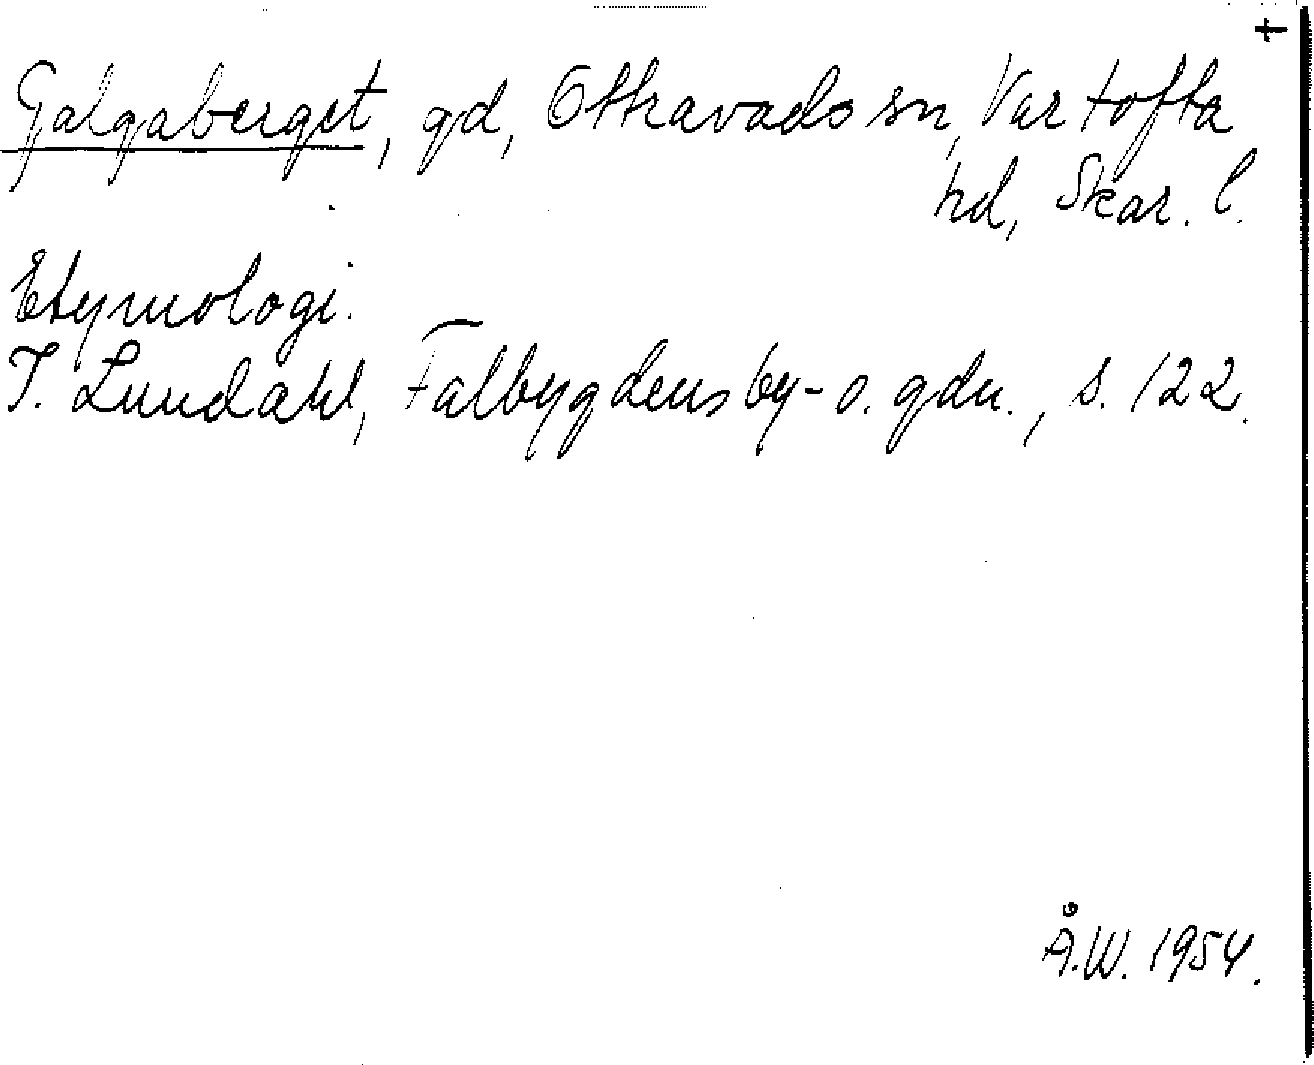 †
Galgaberget, gd, Ottravads sn, Vartofta
hd, Skar. l.
Etymologi.
I. Lundahl, Falbygdens by- o. gdn., s. 122.
Å.W. 1954.